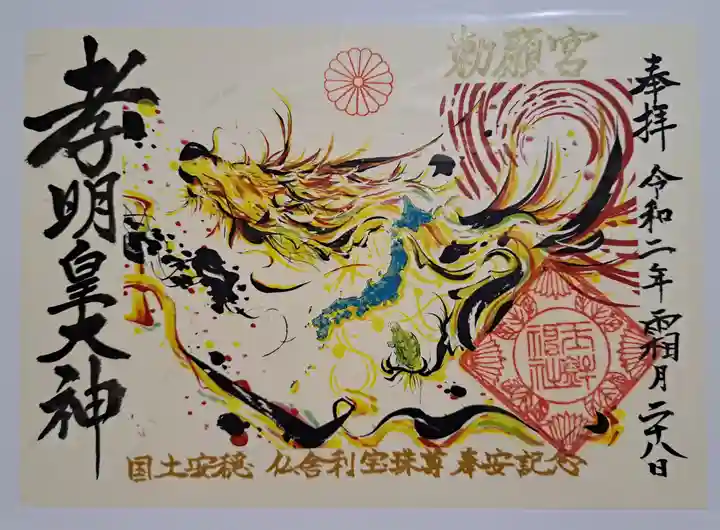 勅願宮
奉拝 令和二年 霜月二十八日
孝明皇大神
国土安穏 仏舎利宝珠尊 奉安記念
玉鉾
神社